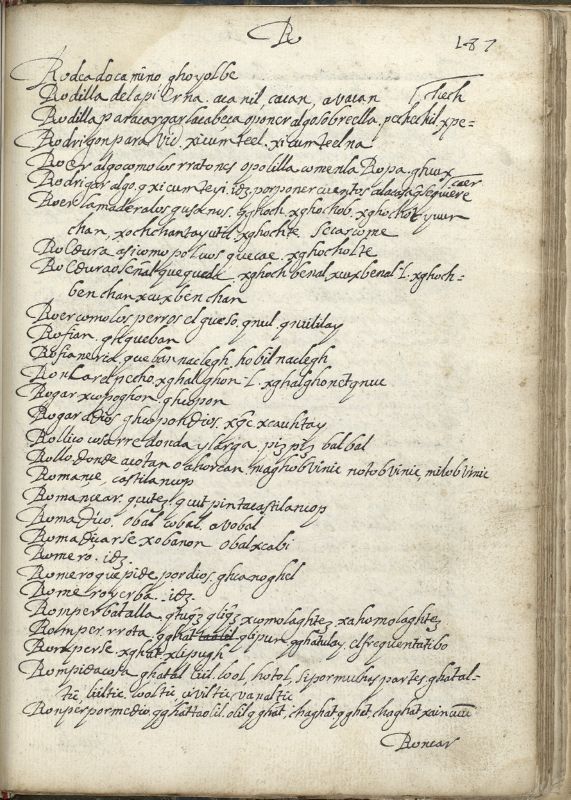 R
187
Rodeadocamino ghoyolbe
Rodilla delapierna. acanil, cacan, avacan
Rodilla paracargarlacabeça oponer algo sobre ella. pechchil. xpe=
chech
Rodrigon para vid. xicumteel. xicumteelna
Roer algo como los rratones opolilla comen la Ropa. ghux
Rodrigar algo. q xicumteyi. idẽ, por poner cuentos ala casa q se quiere
caer
Roer la madera los gusanos. qghoch, xghochob. xghochot yuun
chan, xochchantayutil. xghochte. secascome
Roedura asi como poluos que cae. xghocholte
Roedura o señal que queda xghoch benal xux benal l. xghoch=
benchan xuxbenchan
Roer como los perros el queso. qnul. qnuililay
Rofian. ghqueban
Rofianeria, queban naclegh hobil naclegh
Ronca el pecho. xghalghon l. xghalghonet qnue
Rogar xcopoghon. ghcopon
Rogar adios. ghcopohdios. xghc xcauhtay
Rollico cosa rredonda y larga. piz piz balbal
Rollo donde acotan o ahorcan. maghobvinic notobvinic, milobvinic
Romance, castilancop
Romancear. qcutez. qcut pinta castilancop
Romadico. obal cobal. avobal
Romadicarse xobanon obalxcabi
Romero. idẽ
Romero que pide por dios. ghcanoghel
Romero yerba. idẽ.
Romper batalla. qtuqz qliqz xcomolaghtez, xahomolaghtez
Romper rrota, qghat qlipun qghatulay. el frequentatibo
Romperse. xghat, xlipugh
Rompida cosa ghatal liil. lool, hotol, si por muchas partes, ghatal=
tic, liiltic, looltic viviltic, vanaltic
Romper por medio. qghattaolil. olil qghat, chaghat qghet, chaghat xaincuu
Roncar